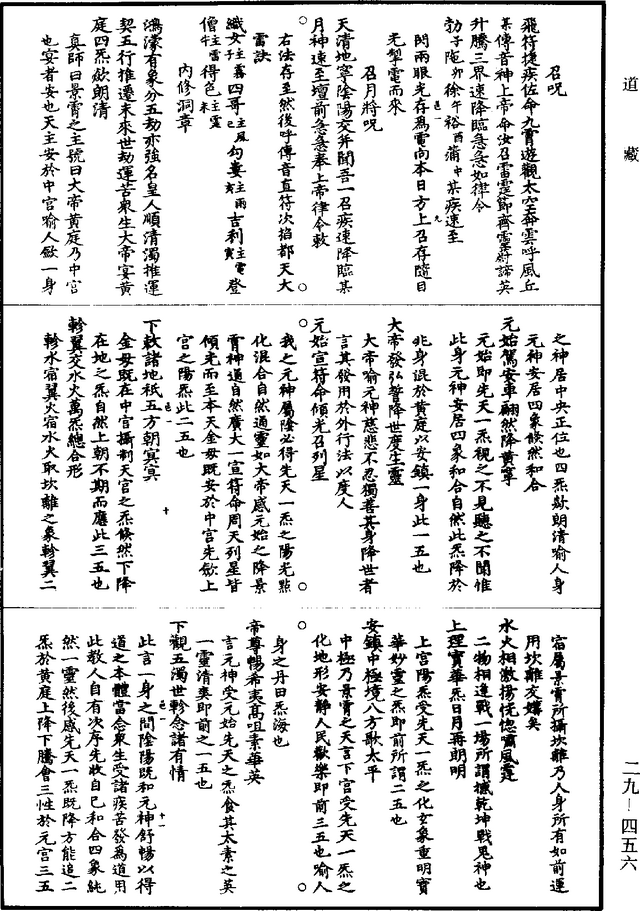 道藏
召呪
飛符捷疾佐命九霄遊觀太空奔雲呼風丘
某傳音神上帝命汝召雷霆節齊靈蔚諦英
升騰三界速降臨急急如律令
勃子陁卯徐午裕酉蒲中某疾速至
閃兩眼光存爲電向本日方上召存隨目
光掣電而來
召月將呪
天清地寧陰陽交并聞吾一召疾速降臨某
月神速至壇前急急奉上帝律令敕
右法存至然後呼傳音直符次掐都天大
雷訣
纖女主雷子喜四哥主風勾婁主雨吉利主電登
僧主雷得色主靈
內修洞章
鴻濛有象分五劫亦強名皇人順清濁推運
契五行推遷未來世劫運苦衆生大帝宴黃
庭四炁歘朗清
真師曰景霄之主號曰大帝黃庭乃中宮
也宴者安也天主安於中宮喻人歛一身
之神居中央正位也四炁歘朗清喻人身
元神安居四象倐然和合
元始駕安車翩然降黃寧
元始即先天一炁視之不見聽之不聞惟
此身元神安居四象和合自然此炁降於
兆身混於黃庭以安鎮一身此一五也
大帝發弘誓降世度生靈
大帝喻元神慈悲不忍獨善其身降世者
言其發用於外行法以度人
元始宣符命傾光召列星
我之元神屬陰必得先天一炁之陽光點
化混合自然通靈如大帝感元始之降景
霄神道自然廣大一宣符命周天列星皆
傾光而至本天金母既安於中宮先歛上
宮之陽炁此二五也
下敕諸地祇五方朝冥冥
金母既在中宮攝制天宮之炁倐然下降
在地之炁自然上朝不期而應此三五也
軫翼交水火萬炁總合形
軫水宿翼火宿水火取坎離之象軫翼二
宿屬景霄所攝坎離乃人身所有如前運
用坎離交媾矣
水火相激搏恍惚嘯風霆
二物相逢戰一場所謂撼乾坤戰鬼神也
上理寶華炁日月再朗明
上宮陽炁受先天一炁之化玄象重明寶
華妙靈之炁即前所謂二五也
安鎮中極境八方歌太平
中極乃景霄之天言下宮受先天一炁之
化地形安靜人民歡樂即前三五也喻人
身之丹田炁海也
帝尊暢希夷高咀素華英
言元神受元始先天之炁食其太素之英
一靈清爽即前之一五也
下觀五濁世軫念諸有情
此言一身之間陰陽既和元神舒暢以得
道之本體當念衆生受諸疾苦發爲道用
此教人自有次序先收自己和合四象純
然一靈然後感先天一炁既降方能追二
炁於黃庭上降下騰會三性於元宮三五
二九—四五六